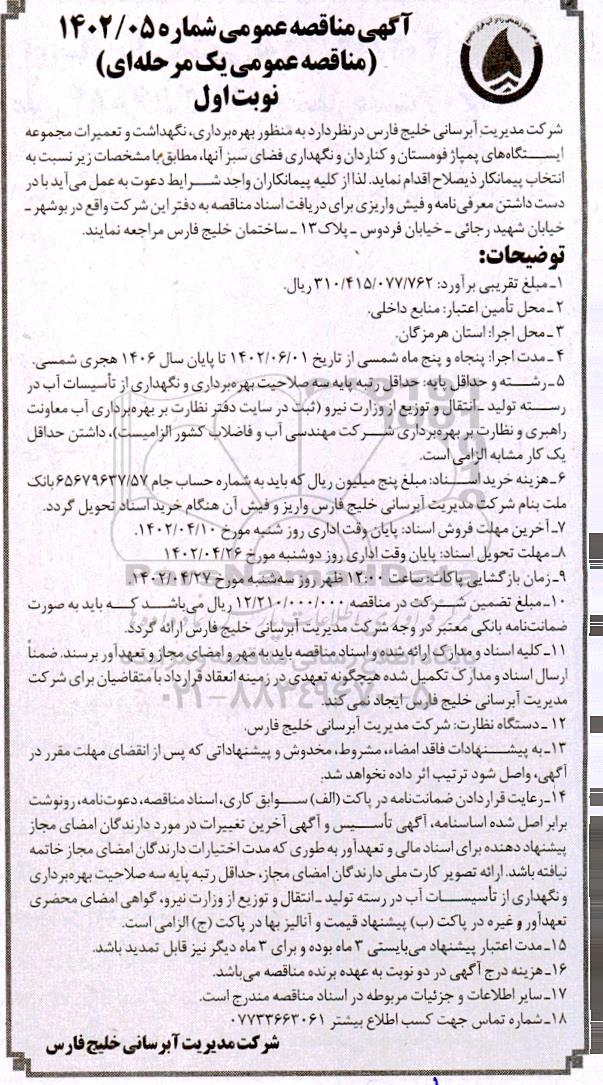 آگهی مناقصه عمومی شماره ۱۴۰۲/۰۵
(مناقصه عمومی یک مرحله‌ای)
نوبت اول
شرکت مدیریت آبرسانی خلیج فارس در نظر دارد به منظور بهره‌برداری، نگهداشت و تعمیرات مجموعه
ایستگاه‌های پمپاژ فومستان و کناردان و نگهداری فضای سبز آنها، مطابق با مشخصات زیر نسبت به
انتخاب پیمانکار ذیصلاح اقدام نماید. لذا از کلیه پیمانکاران واجد شرایط دعوت به عمل می‌آید با در
دست داشتن معرفی‌نامه و فیش واریزی برای دریافت اسناد مناقصه به دفتر این شرکت واقع در بوشهر ـ
خیابان شهید رجائی ـ خیابان فردوس ـ پلاک ۱۳ ـ ساختمان خلیج فارس مراجعه نمایند.
توضیحات:
۱ـ مبلغ تقریبی برآورد: ۳۱۰/۴۱۵/۰۷۷/۷۶۲ ریال.
۲ـ محل تأمین اعتبار: منابع داخلی.
۳ـ محل اجرا: استان هرمزگان.
۴ـ مدت اجرا: پنجاه و پنج ماه شمسی از تاریخ ۱۴۰۲/۰۶/۰۱ تا پایان سال ۱۴۰۶ هجری شمسی.
۵ـ رشته و حداقل پایه: حداقل رتبه پایه سه صلاحیت بهره‌برداری و نگهداری از تأسیسات آب در
رسته تولید ـ انتقال و توزیع از وزارت نیرو (ثبت در سایت دفتر نظارت بر بهره‌برداری آب معاونت
راهبری و نظارت بر بهره‌برداری شرکت مهندسی آب و فاضلاب کشور الزامیست)، داشتن حداقل
یک کار مشابه الزامی است.
۶ـ هزینه خرید اسناد: مبلغ پنج میلیون ریال که باید به شماره حساب جام ۶۵۶۷۹۶۳۷/۵۷ بانک
ملت بنام شرکت مدیریت آبرسانی خلیج فارس واریز و فیش آن هنگام خرید اسناد تحویل گردد.
۷ـ آخرین مهلت فروش اسناد: پایان وقت اداری روز شنبه مورخ ۱۴۰۲/۰۴/۱۰.
۸ـ مهلت تحویل اسناد: پایان وقت اداری روز دوشنبه مورخ ۱۴۰۲/۰۴/۲۶
۹ـ زمان بازگشایی پاکات: ساعت ۱۲:۰۰ ظهر روز سه‌شنبه مورخ ۱۴۰۲/۰۴/۲۷.
۱۰ـ مبلغ تضمین شرکت در مناقصه ۱۲/۲۱۰/۰۰۰/۰۰۰ ریال می‌باشد که باید به صورت
ضمانت‌نامه بانکی معتبر در وجه شرکت مدیریت آبرسانی خلیج فارس ارائه گردد.
۱۱ـ کلیه اسناد و مدارک ارائه شده و اسناد مناقصه باید به مهر و امضای مجاز و تعهدآور برسند. ضمناً
ارسال اسناد و مدارک تکمیل شده هیچگونه تعهدی در زمینه انعقاد قرارداد با متقاضیان برای شرکت
مدیریت آبرسانی خلیج فارس ایجاد نمی‌کند.
۱۲ـ دستگاه نظارت: شرکت مدیریت آبرسانی خلیج فارس.
۱۳ـ به پیشنهادات فاقد امضاء، مشروط، مخدوش و پیشنهاداتی که پس از انقضای مهلت مقرر در
آگهی، واصل شود ترتیب اثر داده نخواهد شد.
۱۴ـ رعایت قرار دادن ضمانت‌نامه در پاکت (الف) سوابق کاری، اسناد مناقصه، دعوت‌نامه، رونوشت
برابر اصل شده اساسنامه، آگهی تأسیس و آگهی آخرین تغییرات در مورد دارندگان امضای مجاز
پیشنهاد دهنده برای اسناد مالی و تعهدآور به طوری که مدت اختیارات دارندگان امضای مجاز خاتمه
نیافته باشد. ارائه تصویر کارت ملی دارندگان امضای مجاز، حداقل رتبه پایه سه صلاحیت بهره‌برداری
و نگهداری از تأسیسات آب در رسته تولید ـ انتقال و توزیع از وزارت نیرو، گواهی امضای محضری
تعهدآور و غیره در پاکت (ب) پیشنهاد قیمت و آنالیز بها در پاکت (ج) الزامی است.
۱۵ـ مدت اعتبار پیشنهاد می‌بایستی ۳ ماه بوده و برای ۳ ماه دیگر نیز قابل تمدید باشد.
۱۶ـ هزینه درج آگهی در دو نوبت به عهده برنده مناقصه می‌باشد.
۱۷ـ سایر اطلاعات و جزئیات مربوطه در اسناد مناقصه مندرج است.
۱۸ـ شماره تماس جهت کسب اطلاع بیشتر ۰۷۷۳۳۶۶۳۰۶۱
شرکت مدیریت آبرسانی خلیج فارس
ParsNamadData
۰۲۱-۸۸۳۴۹۶۷۰-۵